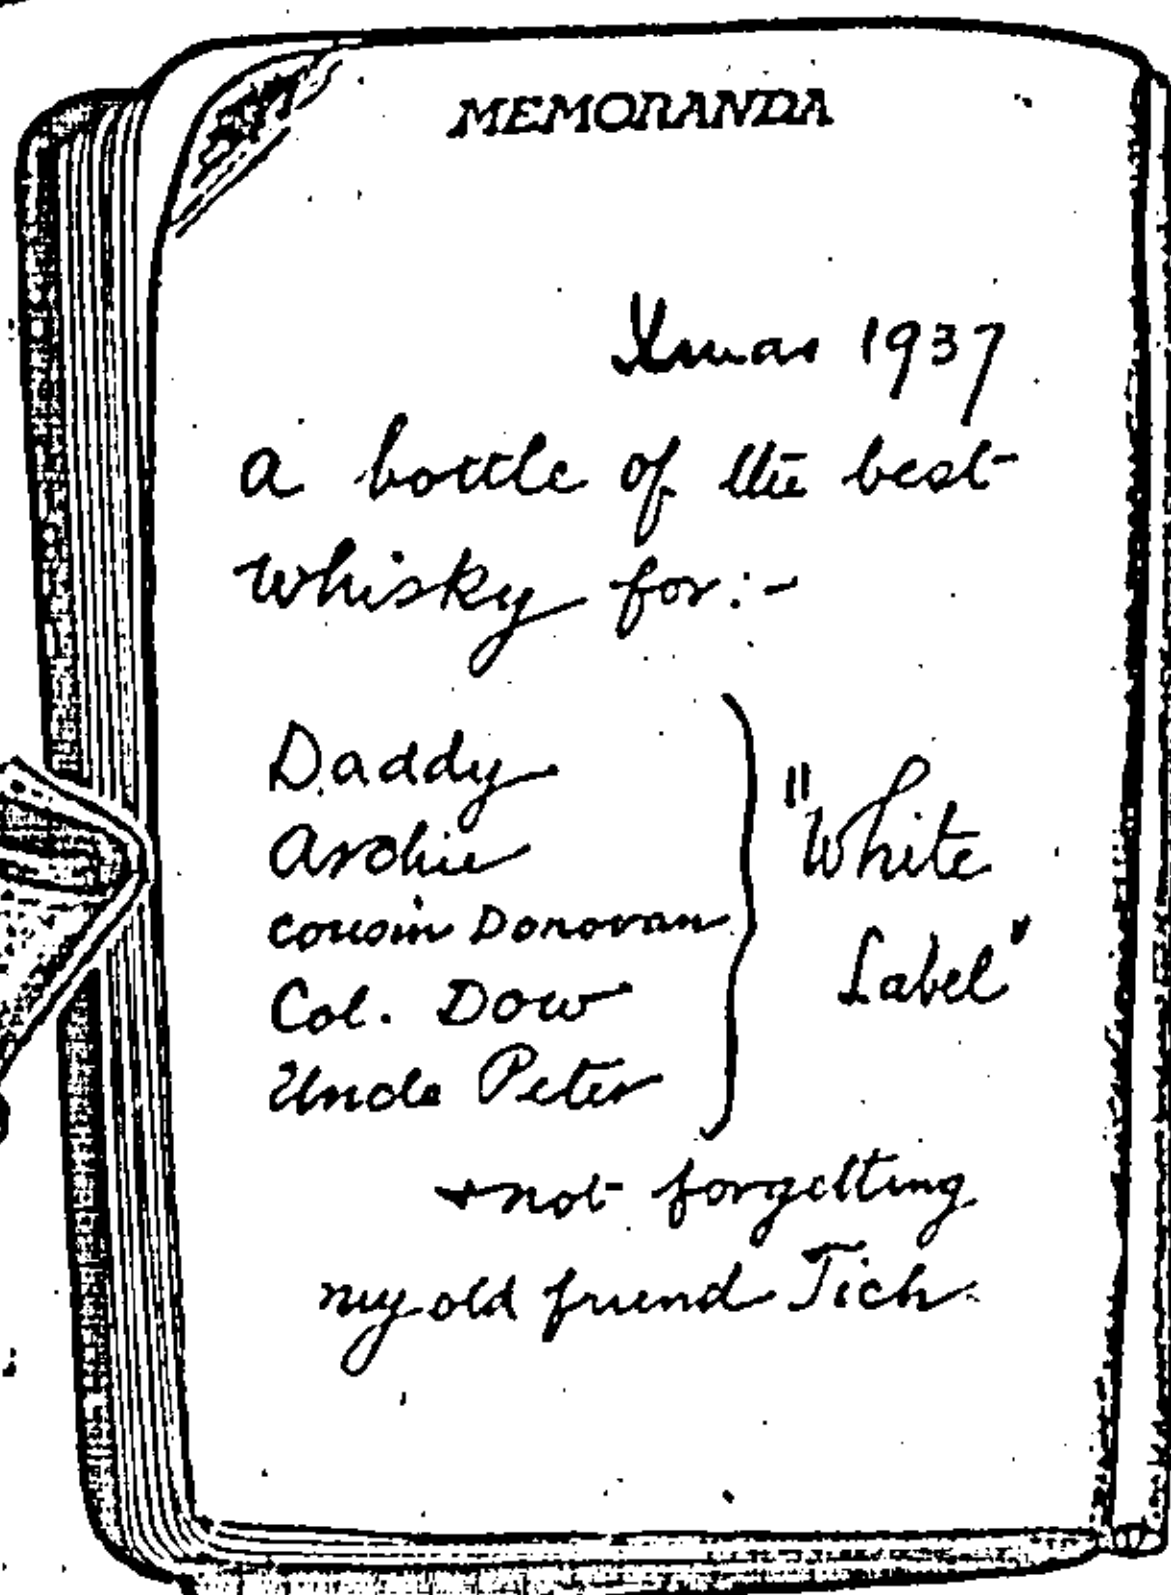 MEMORANDA
Xmas 1937
a bottle of the best
whisky for:-
Daddy
Archie
Cousin Donovan
Col. Dow
Uncle Peter
"White
Label"
+ not forgetting
my old friend Tich